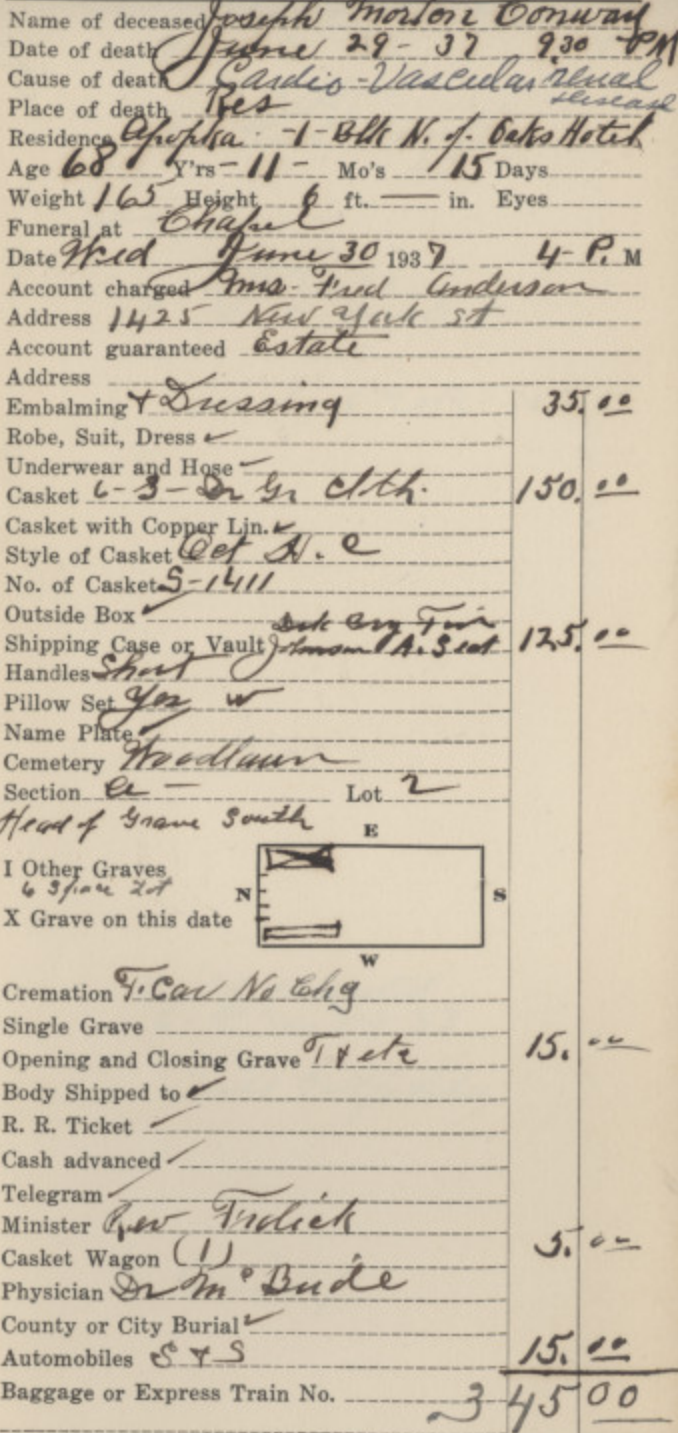 Name of deceased Joseph Morton Conway
Date of death June 29 - 37 9:30 PM
Cause of death Cardio-Vascular renal disease
Place of death Res
Residence Apopka - 1 - Blk N. of Oaks Hotel
Age 68 Y'rs - 11 - Mo's 15 Days
Weight 165 Height 6 ft. — in. Eyes
Funeral at Chapel
Date Wed June 30 1937 4- P. M
Account charged Mrs. Fred Anderson
Address 1425 New York St
Account guaranteed Estate
Address
Embalming & Dressing 35.00
Robe, Suit, Dress ✓
Underwear and Hose ✓
Casket 6-3 - Dr Gr Clth. 150.00
Casket with Copper Lin. ✓
Style of Casket Oct H. C
No. of Casket S-1411
Outside Box ✓
Shipping Case or Vault Johnson A. Seal 125.00
Handles Short
Pillow Set Yes w
Name Plate ✓
Cemetery Woodlawn
Section A - Lot 2
Head of Grave South
E
I Other Graves
6 Space Lot
N S
X Grave on this date
W
Cremation T. Car No Chg
Single Grave
Opening and Closing Grave T & etc 15.00
Body Shipped to ✓
R. R. Ticket ✓
Cash advanced ✓
Telegram ✓
Minister Rev Frolick
Casket Wagon (1) 5.00
Physician Dr McBride
County or City Burial ✓
Automobiles S & S 15.00
Baggage or Express Train No. 345 00